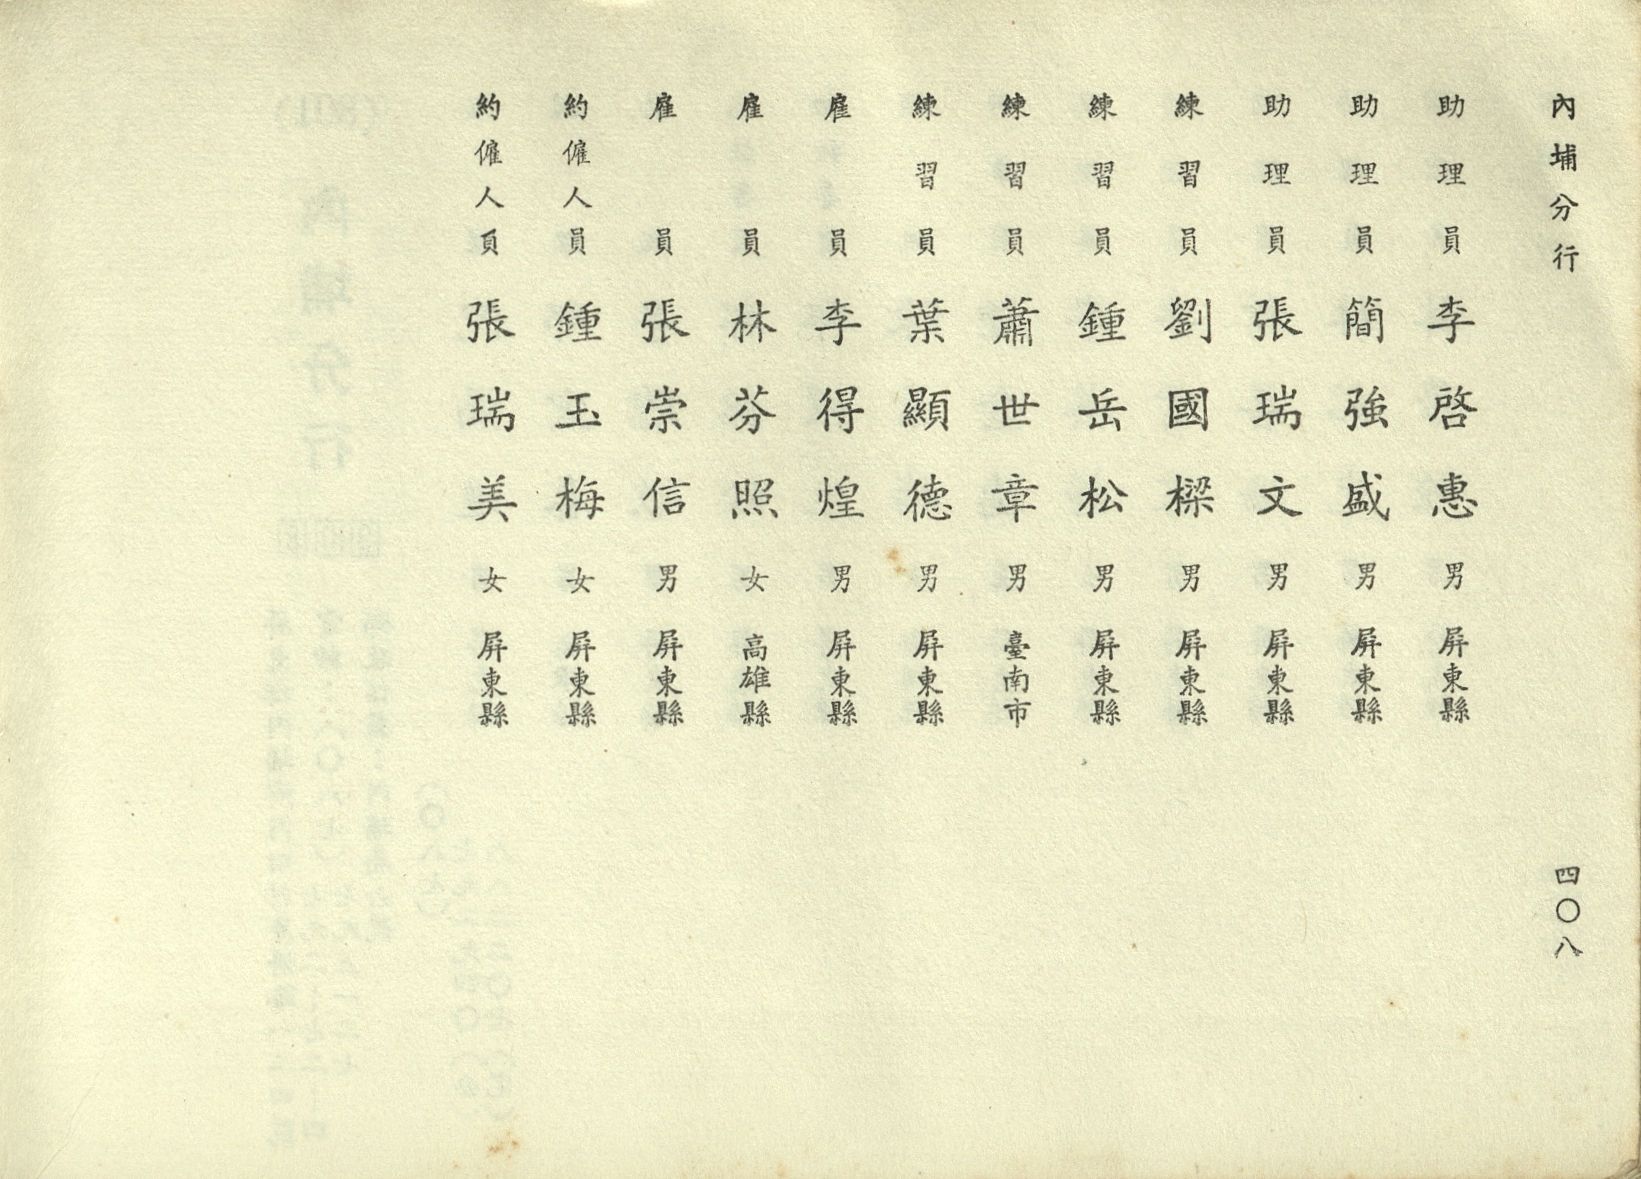 內埔分行
四〇八
助理員 李啓惠 男 屏東縣
助理員 簡強盛 男 屏東縣
助理員 張瑞文 男 屏東縣
練習員 劉國樑 男 屏東縣
練習員 鍾岳松 男 屏東縣
練習員 蕭世章 男 臺南市
練習員 葉顯德 男 屏東縣
雇員 李得煌 男 屏東縣
雇員 林芬照 女 高雄縣
雇員 張崇信 男 屏東縣
約僱人員 鍾玉梅 女 屏東縣
約僱人員 張瑞美 女 屏東縣